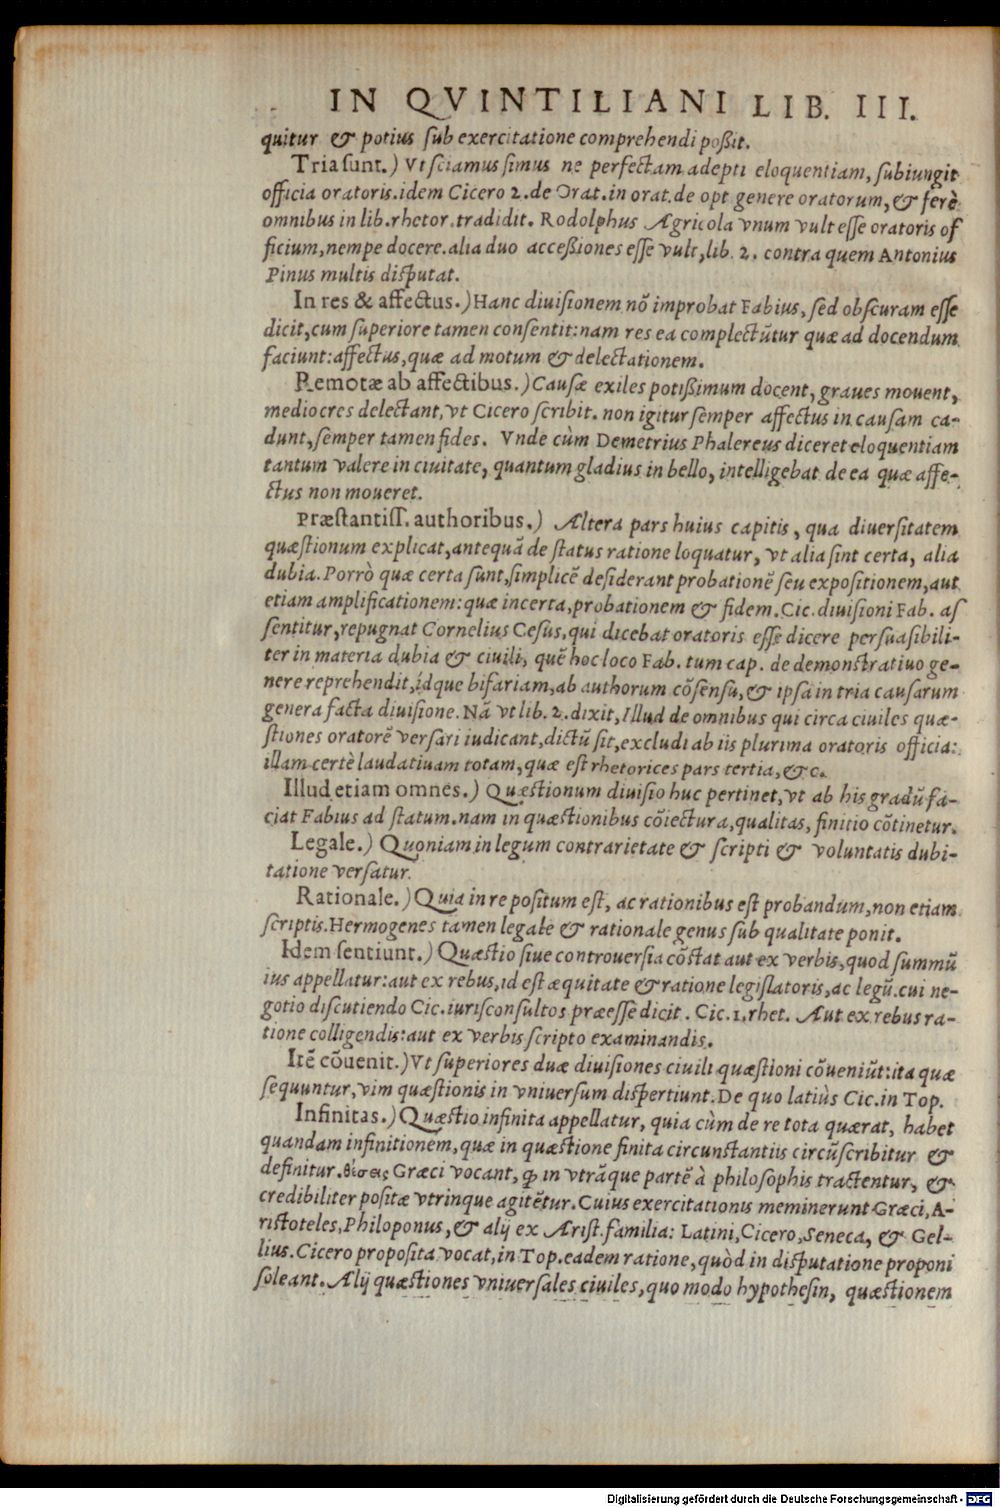 IN QVINTILIANI LIB. III.
quitur & potius sub exercitatione comprehendi poßit.
Tria sunt.) Vt sciamus simus ne perfectam adepti eloquentiam, subiungit
officia oratoris. idem Cicero 2. de Orat. in orat. de opt genere oratorum, & ferè
omnibus in lib. rhetor. tradidit. Rodolphus Agricola vnum vult esse oratoris of
ficium, nempe docere. alia duo acceßiones esse vult, lib. 2. contra quem Antonius
Pinus multis disputat.
In res & affectus.) Hanc diuisionem nō improbat Fabius, sed obscuram esse
dicit, cum superiore tamen consentit: nam res ea complectūtur quæ ad docendum
faciunt: affectus, quæ ad motum & delectationem.
Remotæ ab affectibus.) Causæ exiles potißimum docent, graues mouent,
mediocres delectant, vt Cicero scribit. non igitur semper affectus in causam ca-
dunt, semper tamen fides. Vnde cùm Demetrius Phalereus diceret eloquentiam
tantum valere in ciuitate, quantum gladius in bello, intelligebat de ea quæ affe-
ctus non moueret.
Præstantiss. authoribus.) Altera pars huius capitis, qua diuersitatem
quæstionum explicat, antequā de status ratione loquatur, vt alia sint certa, alia
dubia. Porrò quæ certa sunt, simplicē desiderant probationē seu expositionem, aut
etiam amplificationem: quæ incerta, probationem & fidem. Cic. diuisioni Fab. as
sentitur, repugnat Cornelius Cesus, qui dicebat oratoris esse dicere persuasibili-
ter in materia dubia & ciuili, quē hoc loco Fab. tum cap. de demonstratiuo ge-
nere reprehendit, idque bifariam, ab authorum cōsensu, & ipsa in tria causarum
genera facta diuisione. Nā vt lib. 2. dixit, Illud de omnibus qui circa ciuiles quæ-
stiones oratorē versari iudicant, dictū sit, excludi ab iis plurima oratoris officia:
illam certè laudatiuam totam, quæ est rhetorices pars tertia, &c.
Illud etiam omnes.) Quæstionum diuisio huc pertinet, vt ab his gradū fa-
ciat Fabius ad statum. nam in quæstionibus cōiectura, qualitas, finitio cōtinetur.
Legale.) Quoniam in legum contrarietate & scripti & voluntatis dubi-
tatione versatur.
Rationale.) Quia in re positum est, ac rationibus est probandum, non etiam
scriptis. Hermogenes tamen legale & rationale genus sub qualitate ponit.
Idem sentiunt.) Quæstio siue controuersia cōstat aut ex verbis, quod summū
ius appellatur: aut ex rebus, id est æquitate & ratione legislatoris, ac legū. cui ne-
gotio discutiendo Cic. iurisconsultos præesse dicit. Cic. 1. rhet. Aut ex rebus ra-
tione colligendis: aut ex verbis scripto examinandis.
Itē cōuenit.) Vt superiores duæ diuisiones ciuili quæstioni cōueniūt: ita quæ
sequuntur, vim quæstionis in vniuersum dispertiunt. De quo latiùs Cic. in Top.
Infinitas.) Quæstio infinita appellatur, quia cùm de re tota quærat, habet
quandam infinitionem, quæ in quæstione finita circunstantiis circūscribitur &
definitur. θέσεις Græci vocant, ꝙ in vtrāque partē à philosophis tractentur, &
credibiliter positæ vtrinque agitētur. Cuius exercitationis meminerunt Græci, A-
ristoteles, Philoponus, & alij ex Arist. familia: Latini, Cicero, Seneca, & Gel-
lius. Cicero proposita vocat, in Top. eadem ratione, quòd in disputatione proponi
soleant. Alij quæstiones vniuersales ciuiles, quo modo hypothesin, quæstionem
Digitalisierung gefördert durch die Deutsche Forschungsgemeinschaft - DFG